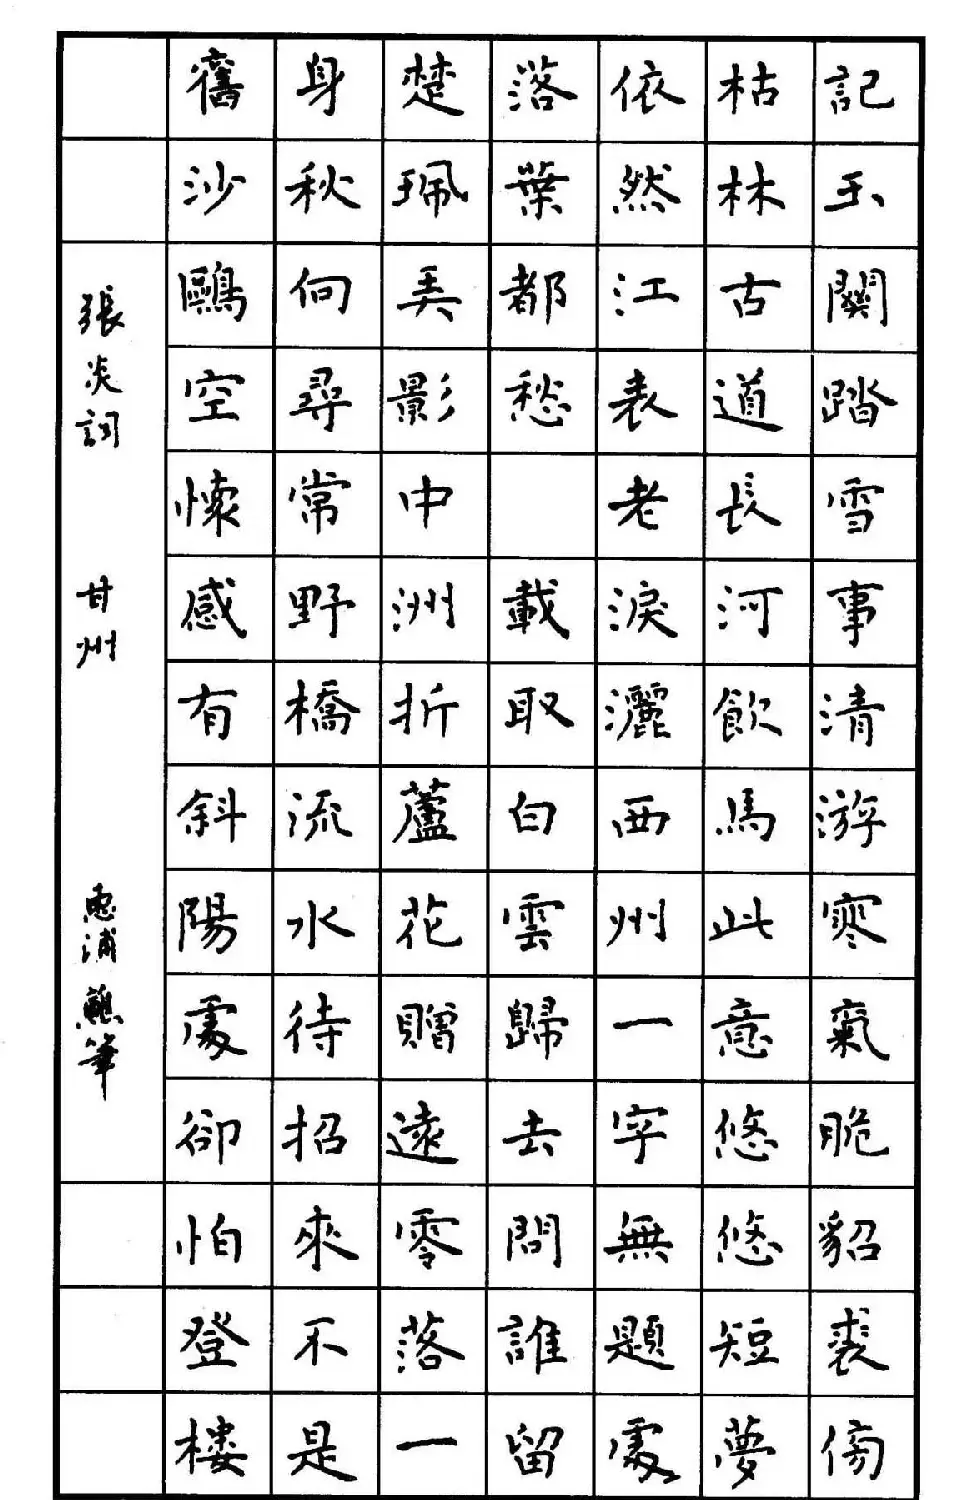 記玉關踏雪事清游寒氣脆貂裘傍
枯林古道長河飲馬此意悠悠短夢
依然江表老淚灑西州一字無題處
落葉都愁 載取白雲歸去問誰留
楚珮弄影中洲折蘆花贈遠零落一
身秋向尋常野橋流水待招來不是
舊沙鷗空懷感有斜陽處卻怕登樓
張炎詞 甘州 惠浦蘸筆